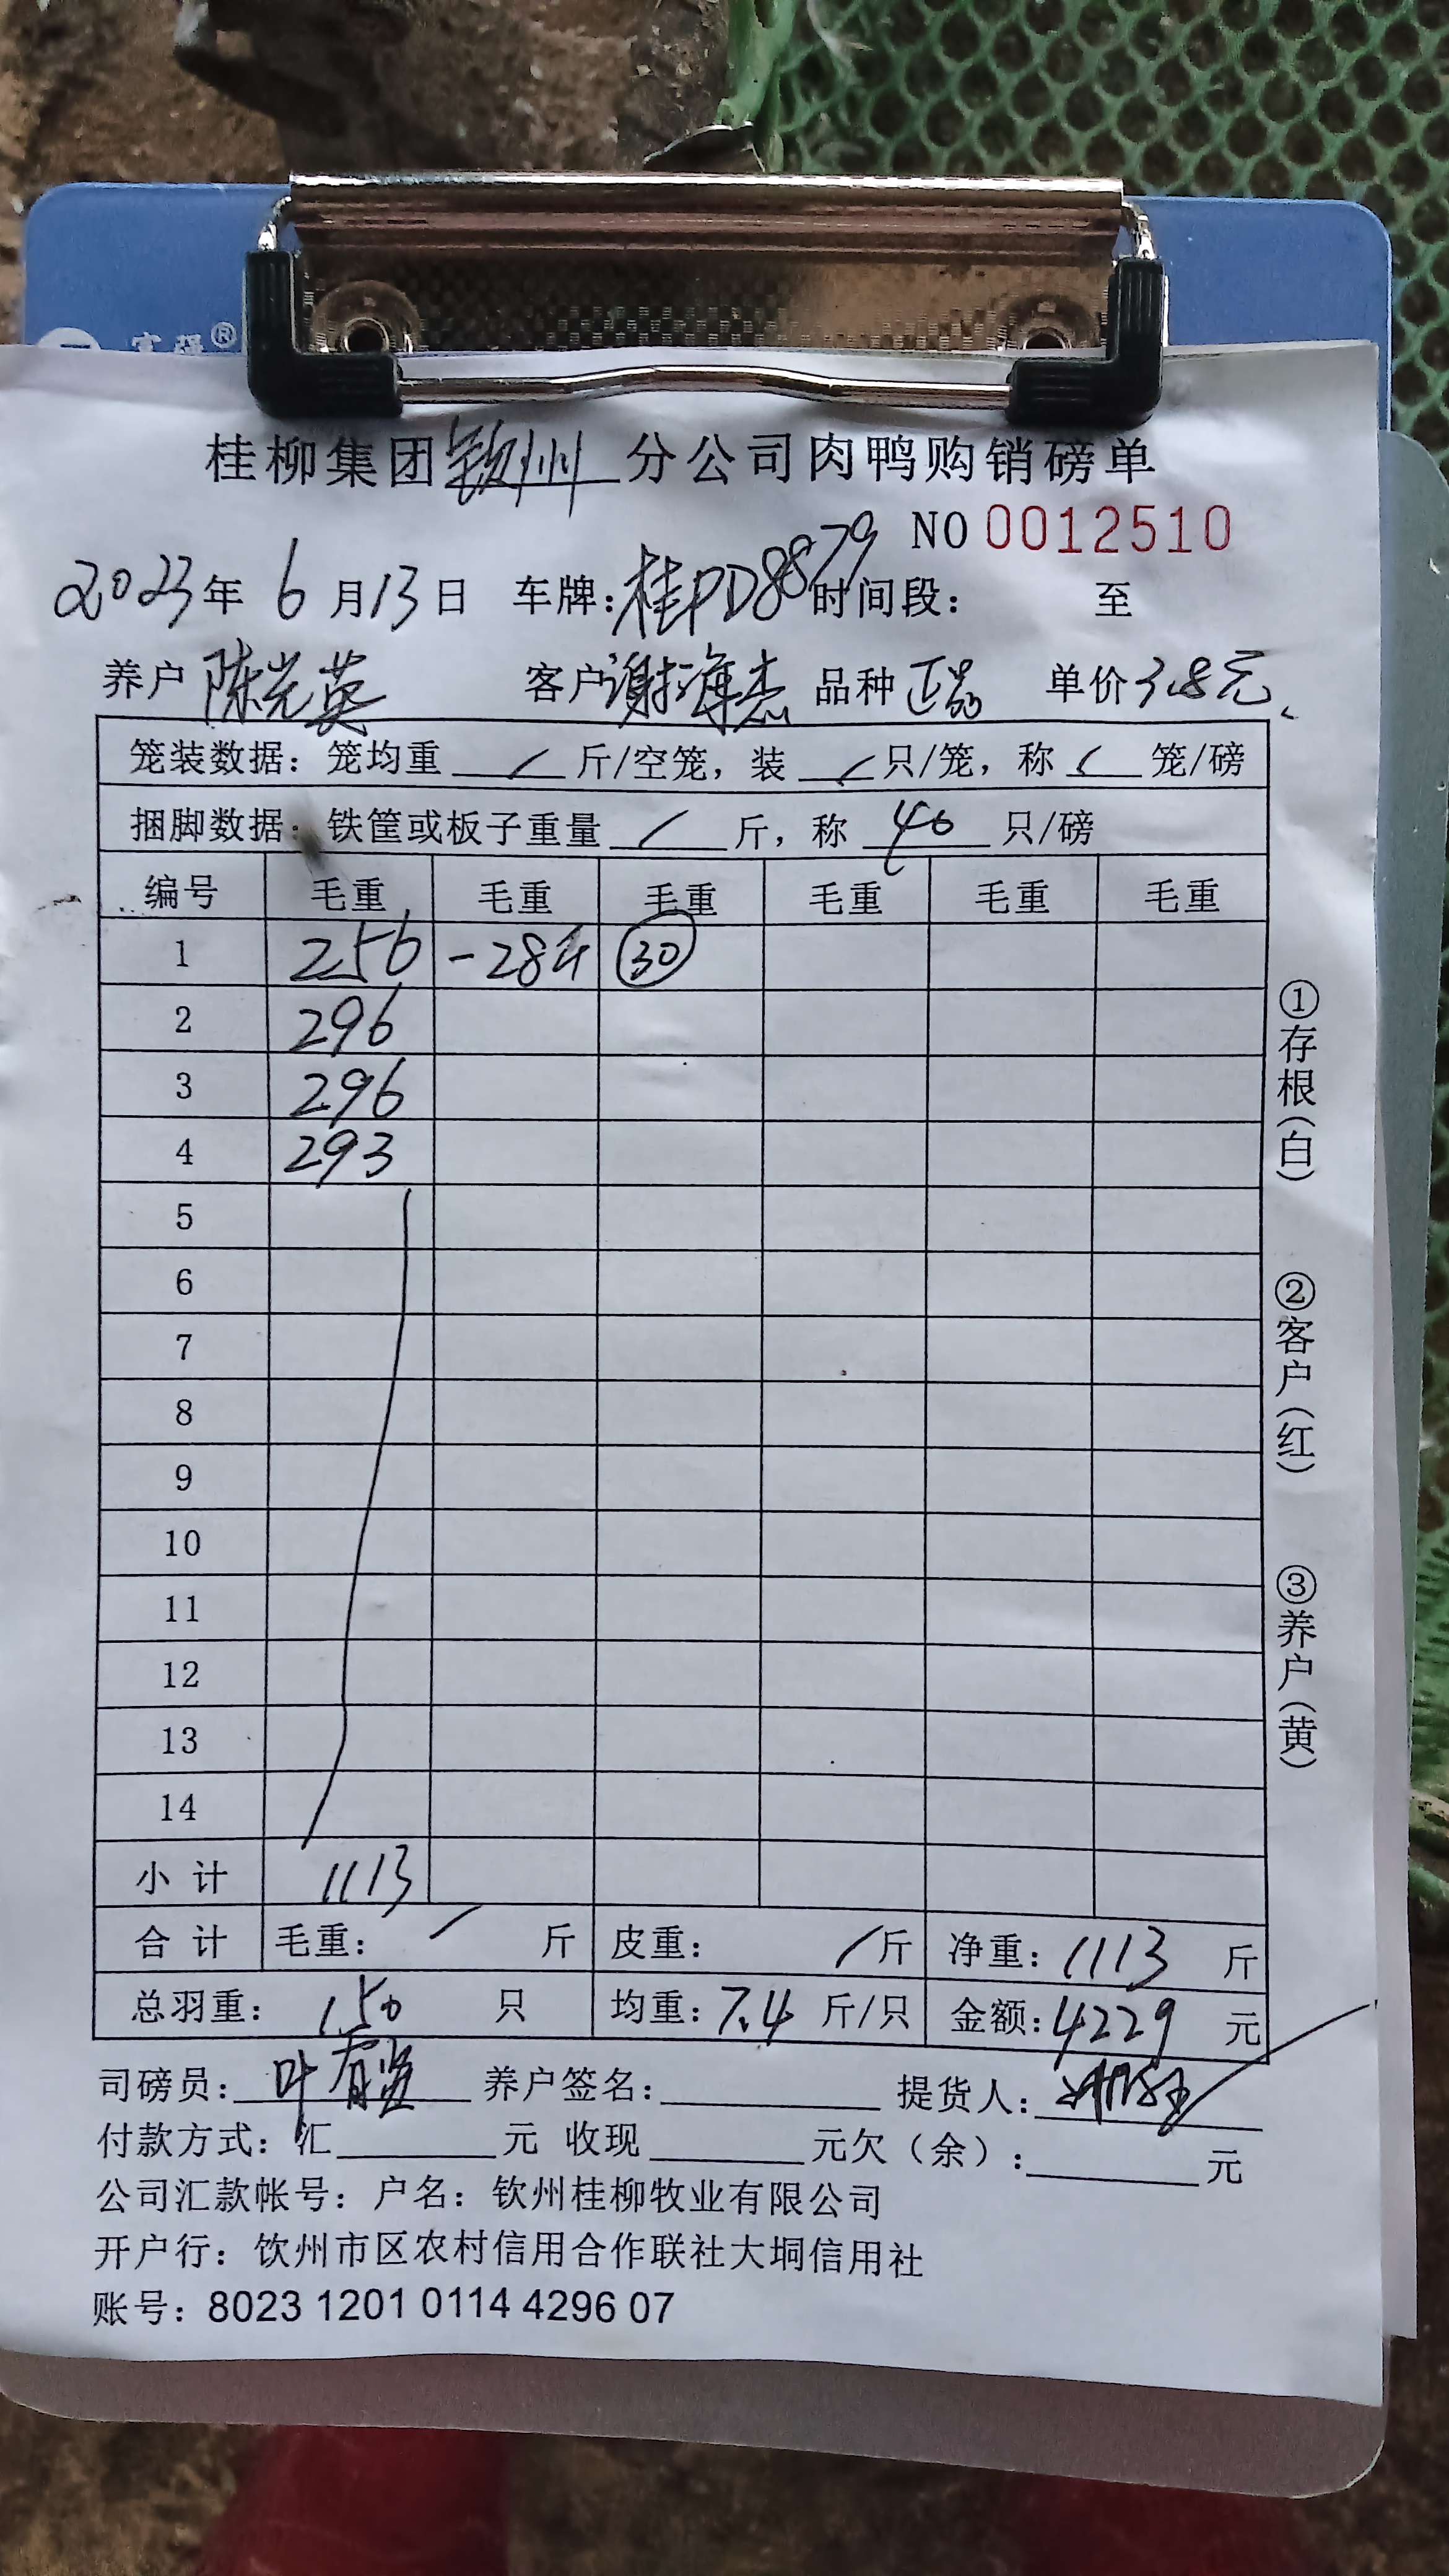 富强®
桂柳集团钦州分公司肉鸭购销磅单
NO 0012510
2023年 6月13日 车牌:桂PD8879 时间段: 至
养户 陈光英 客户 谢海杰 品种 正品 单价 3.8元
笼装数据: 笼均重 / 斤/空笼, 装 / 只/笼, 称 / 笼/磅
捆脚数据: 铁筐或板子重量 / 斤, 称 40 只/磅
编号 毛重 毛重 毛重 毛重 毛重 毛重
1 256 -284 30
2 296
3 296
4 293
5
6
7
8
9
10
11
12
13
14
小计 1113
合计 毛重: / 斤 皮重: / 斤 净重: 1113 斤
总羽重: 150 只 均重: 7.4 斤/只 金额: 4229 元
司磅员: 叶 养户签名: 提货人:
付款方式: 汇 元 收现 元欠(余): 元
公司汇款帐号: 户名: 钦州桂柳牧业有限公司
开户行: 钦州市区农村信用合作联社大垌信用社
账号: 8023 1201 0114 4296 07
①存根(白)
②客户(红)
③养户(黄)